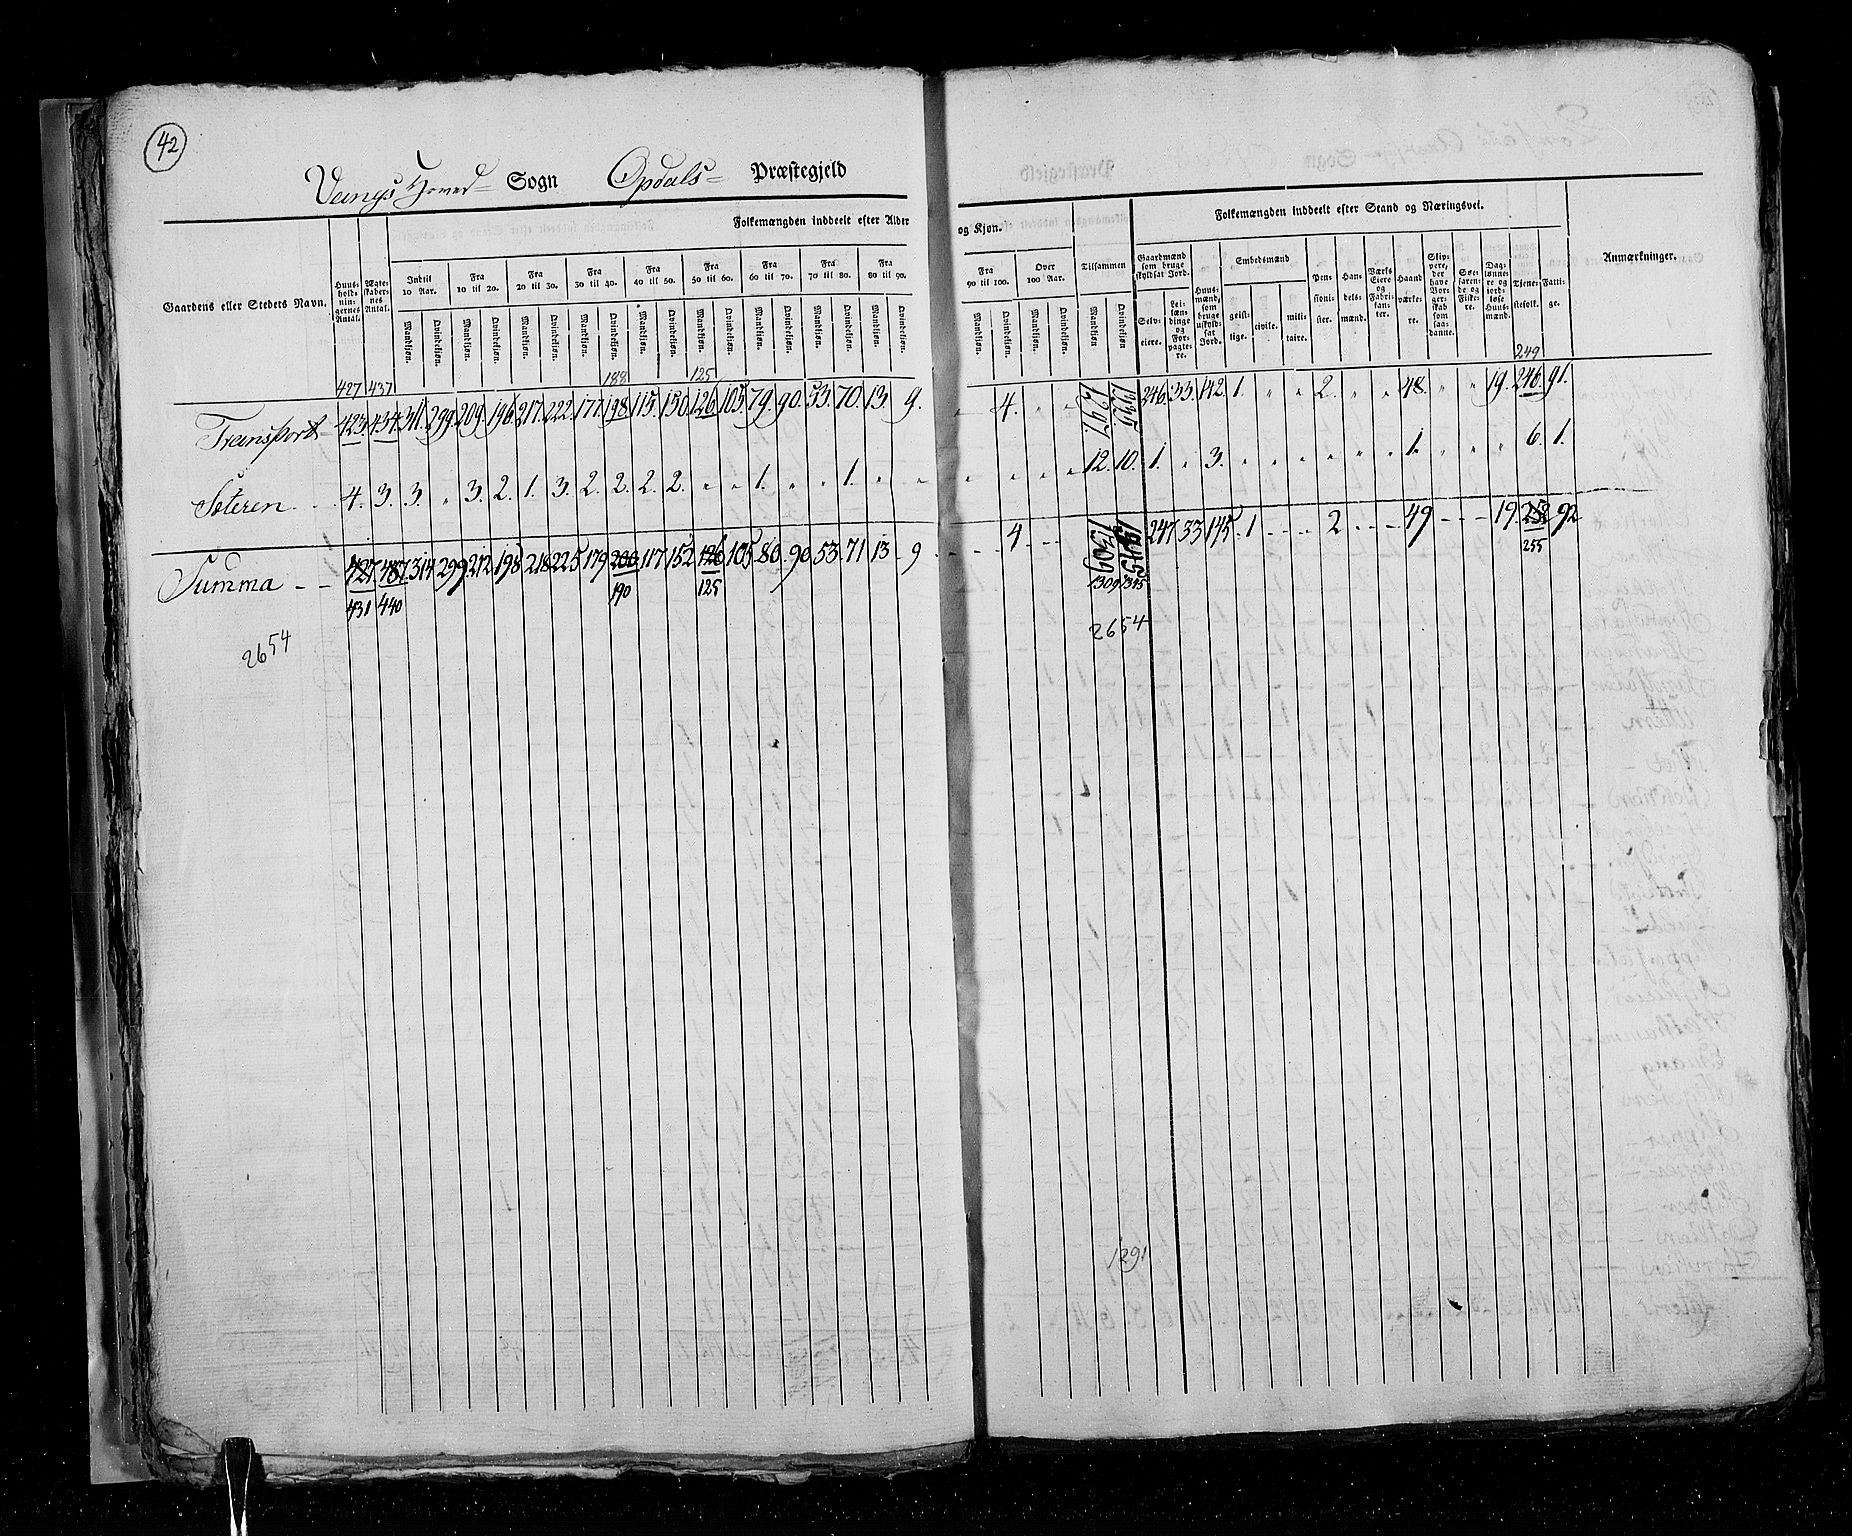 42
Vangs Hoved Sogn Opdals Præstegjeld
Præstegjeld
Gaardens eller Stedets Navn. Huusholdningernes Antal. Ægteskabernes Antal. Folkemængden inddeelt efter Alder og Kjøn. Tilsammen Folkemængden inddeelt efter Stand og Næringsvei. Anmærkninger.
Indtil 10 Aar. Fra 10 til 20. Fra 20 til 30. Fra 30 til 40. Fra 40 til 50. Fra 50 til 60. Fra 60 til 70. Fra 70 til 80. Fra 80 til 90. Fra 90 til 100. Over 100 Aar.
Gaardmænd som bruge skyldsat Jord. Huusmænd, som bruge uskyldsat Jord. Embedsmænd Pensionister. Handelsmænd. Værks Eiere og Fabrikanter. Haandværkere. Skippere, der have Borgerskab som saadanne. Søefarende og Fiskere. Daglønnere og jordløse Huusmænd. Tjenestefolk. Fattige.
Mandkjøn. Qvindekjøn. Mandkjøn. Qvindekjøn. Mandkjøn. Qvindekjøn. Mandkjøn. Qvindekjøn. Mandkjøn. Qvindekjøn. Mandkjøn. Qvindekjøn. Mandkjøn. Qvindekjøn. Mandkjøn. Qvindekjøn. Mandkjøn. Qvindekjøn. Mandkjøn. Qvindekjøn. Mandkjøn. Qvindekjøn. Mandkjøn Qvindekjøn Selveiere. Leilændinge og Forpagtere. geistlige. civile. militaire.
427 437 188 125 249
Transport 423. 434. 311. 299. 209. 196. 217. 222. 177. 198. 115. 150. 126. 105. 79. 90. 53. 70. 13. 9. " 4. " " 1297. 1335. 246. 33. 142. 1. " " 2. " " 48. " " 19. 246. 91.
Sæteren 4. 3. 3. " 3. 2. 1. 3. 2. 2. 2. 2. " " 1. " " 1. " " " " " " 12. 10. 1. " 3. " " " " " " 1. " " " 6. 1.
Summa 427. 437. 314 299 212 198 218 225 179 200 117 152 126 105 80 90 53 71 13 9 4 1309 1345 247 33 145 1 2 49 19. 252 92
431 440 190 125 1309 1345 255
2654 2654
1291